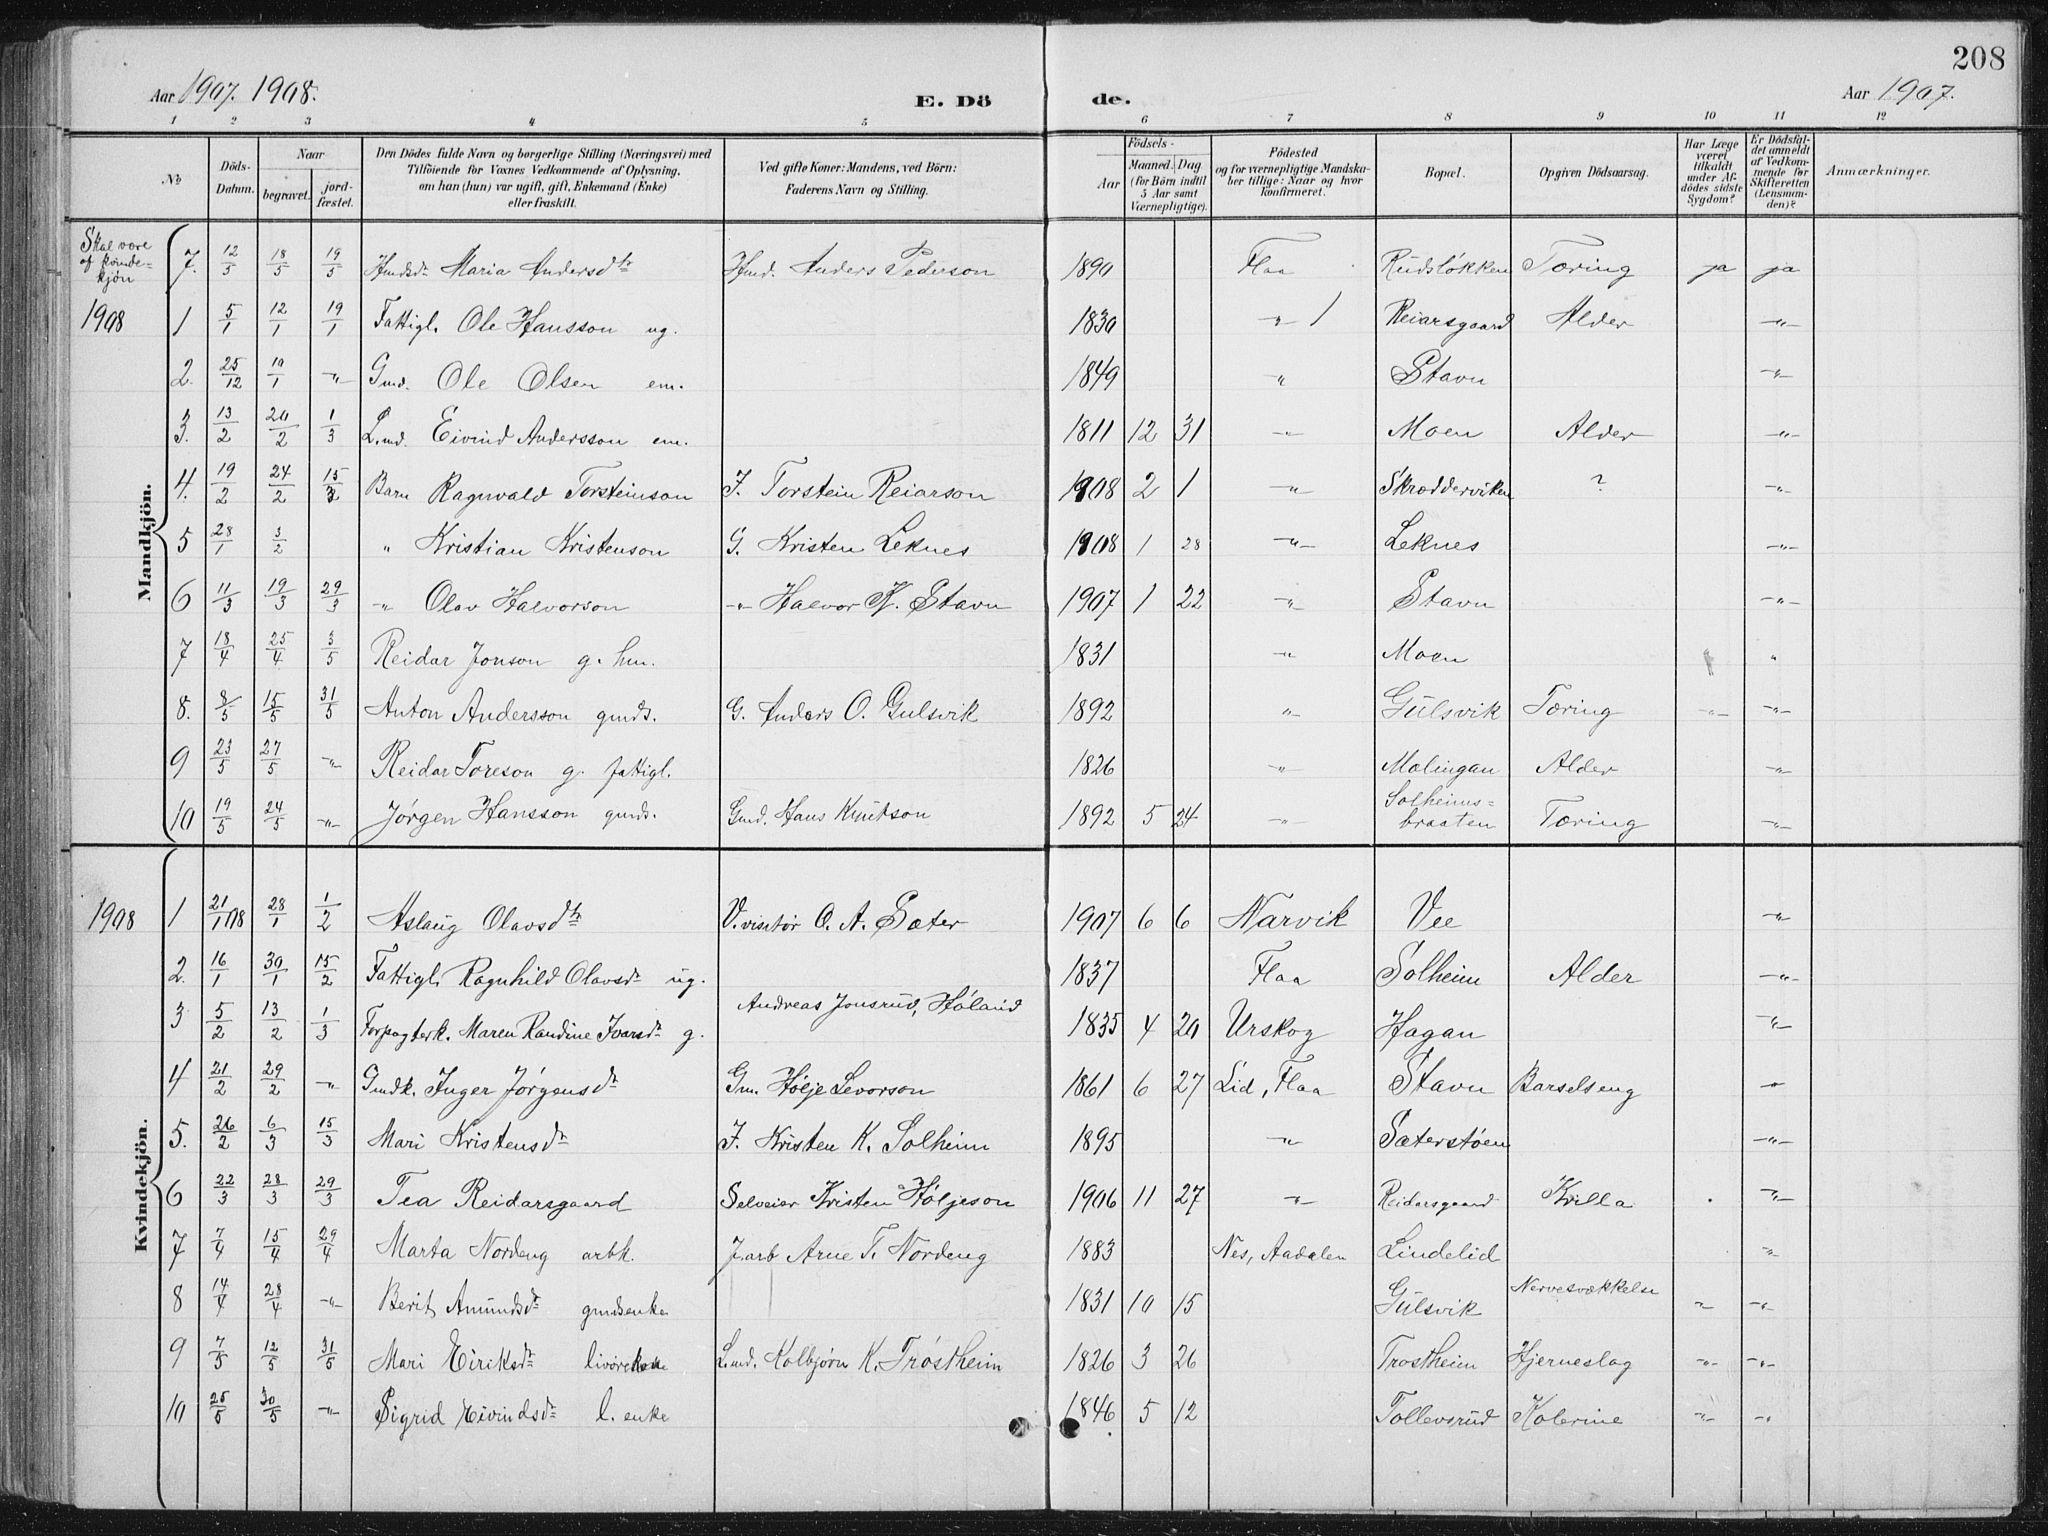 208
Aar 1907. 1908. E. Dö de. Aar 1907.
1 2 3 4 5 6 7 8 9 10 11 12
No Döds-Datum. Naar begravet. jordfæstet. Den Dödes fulde Navn og borgerlige Stilling (Næringsvei) med Tilföiende for Voxnes Vedkommende af Oplysning, om han (hun) var ugift, gift, Enkemand (Enke) eller fraskilt. Ved gifte Koner: Mandens, ved Börn: Faderens Navn og Stilling. Födsels- Aar Maaned. Dag (for Börn indtil 5 Aar samt Værnepligtige). Födested og for værnepligtige Mandskaber tillige: Naar og hvor konfirmeret. Bopæl. Opgiven Dödsaarsag. Har Læge været tilkaldt under Afdödes sidste Sygdom? Er Dödsfaldet anmeldt af Vedkommende for Skifteretten (Lensmanden)? Anmærkninger.
Skal være af kvindekjøn 7. 12/5 18/5 19/5 Hmdsdr Maria Andersdtr Hmd. Anders Pederson 1890 Flaa Rudsløkken Tæring ja ja
Mandkjön.
1908 1 5/1 12/1 19/1 Fattigl. Ole Hansson ug. 1830 -"- Reiarsgaard Alder -"-
2. 25/12 19/1 -"- Gmd. Ole Olsen em. 1849 -"- Stavn -"-
3. 13/2 20/2 1/3 L.md. Eivind Andersson em. 1811 12 31 -"- Moen Alder -"-
4. 19/2 24/2 15/3 Barn Ragnvald Torsteinson F. Torstein Reiarson 1908 2 1 -"- Skrædderviken ? -"-
5 28/1 3/2 " Kristian Kristenson G. Kristen Leknes 1908 1 28 -"- Leknes -"-
6 11/3 19/3 29/3 -"- Olav Halvorson -"- Halvor K. Stavn 1907 1 22 -"- Stavn -"-
7 18/4 25/4 3/5 Reidar Jonson g. hm. 1831 -"- Moen "
8. 8/5 15/5 31/5 Anton Andersson gmds. G. Anders O. Gulsvik 1892 -"- Gulsvik Tæring -"- -"-
9 23/5 27/5 -"- Reidar Toreson g. fattigl. 1826 -"- Molingan Alder -"-
10 19/5 24/5 -"- Jørgen Hansson gmds. Gmd. Hans Knutson 1892 5 24 -"- Solheims=braaten Tæring -"-
Kvindekjön.
1908 1 21/1 08 28/1 1/2 Aslaug Olavsdtr V.visitør O. A. Sæter 1907 6 6 Narvik Vee -"-
2. 16/1 30/1 15/2 Fattigl. Ragnhild Olavsdr ug. 1837 Flaa Solheim Alder -"-
3 5/2 13/2 1/3 Forpagterk. Maren Randine Ivarsdr g. Andreas Jonsrud, Høland 1835 4 20 Urskog Hagan -"-
4 21/2 29/2 -"- Gmdk. Inger Jørgensdr Gm. Hølje Levorson 1861 6 27 Lid, Flaa Stavn Barselseng "
5. 26/2 6/3 15/3 Mari Kristensdr F. Kristen K. Solheim 1895 -"- Sæterstøen -"-
6 22/3 28/3 29/3 Tea Reidarsgaard Selveier Kristen Høljeson 1906 11 27 -"- Reidarsgaard Krilla -"-
7 7/4 15/4 29/4 Marta Nordeng arbk. J.arb Arne T. Nordeng 1883 Nes, Aadalen Lindelid -"-
8 14/4 28/4 -"- Berit Amundsdr gmdsenke 1831 10 15 Gulsvik Nervesvækkelse " -"-
9 7/5 12/5 31/5 Mari Eiriksdr L.md. Kolbjørn K. Trøstheim 1826 3 26 Trøstheim Hjerneslag -"- -"-
10 25/5 30/5 -"- Sigrid Eivindsdr l. enke 1846 5 12 Tollevsrud Kolerine -"- -"-